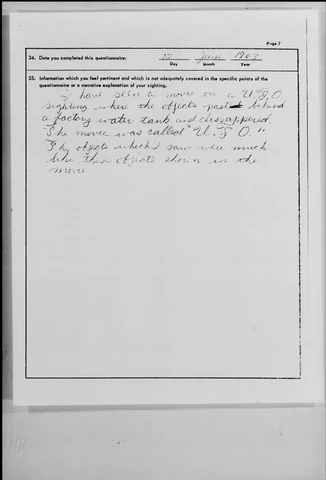 Page 7
34. Date you completed this questionnaire: 10 June 1963
Day Month Year
35. Information which you feel pertinent and which is not adequately covered in the specific points of the
questionnaire or a narrative explanation of your sighting.
I have seen a movie on a U.F.O.
sighting where the objects past behind
a factory water tank and dissappered.
The movie was called "U.F.O."
The objects which I saw were much
like those objects shown in the
movie